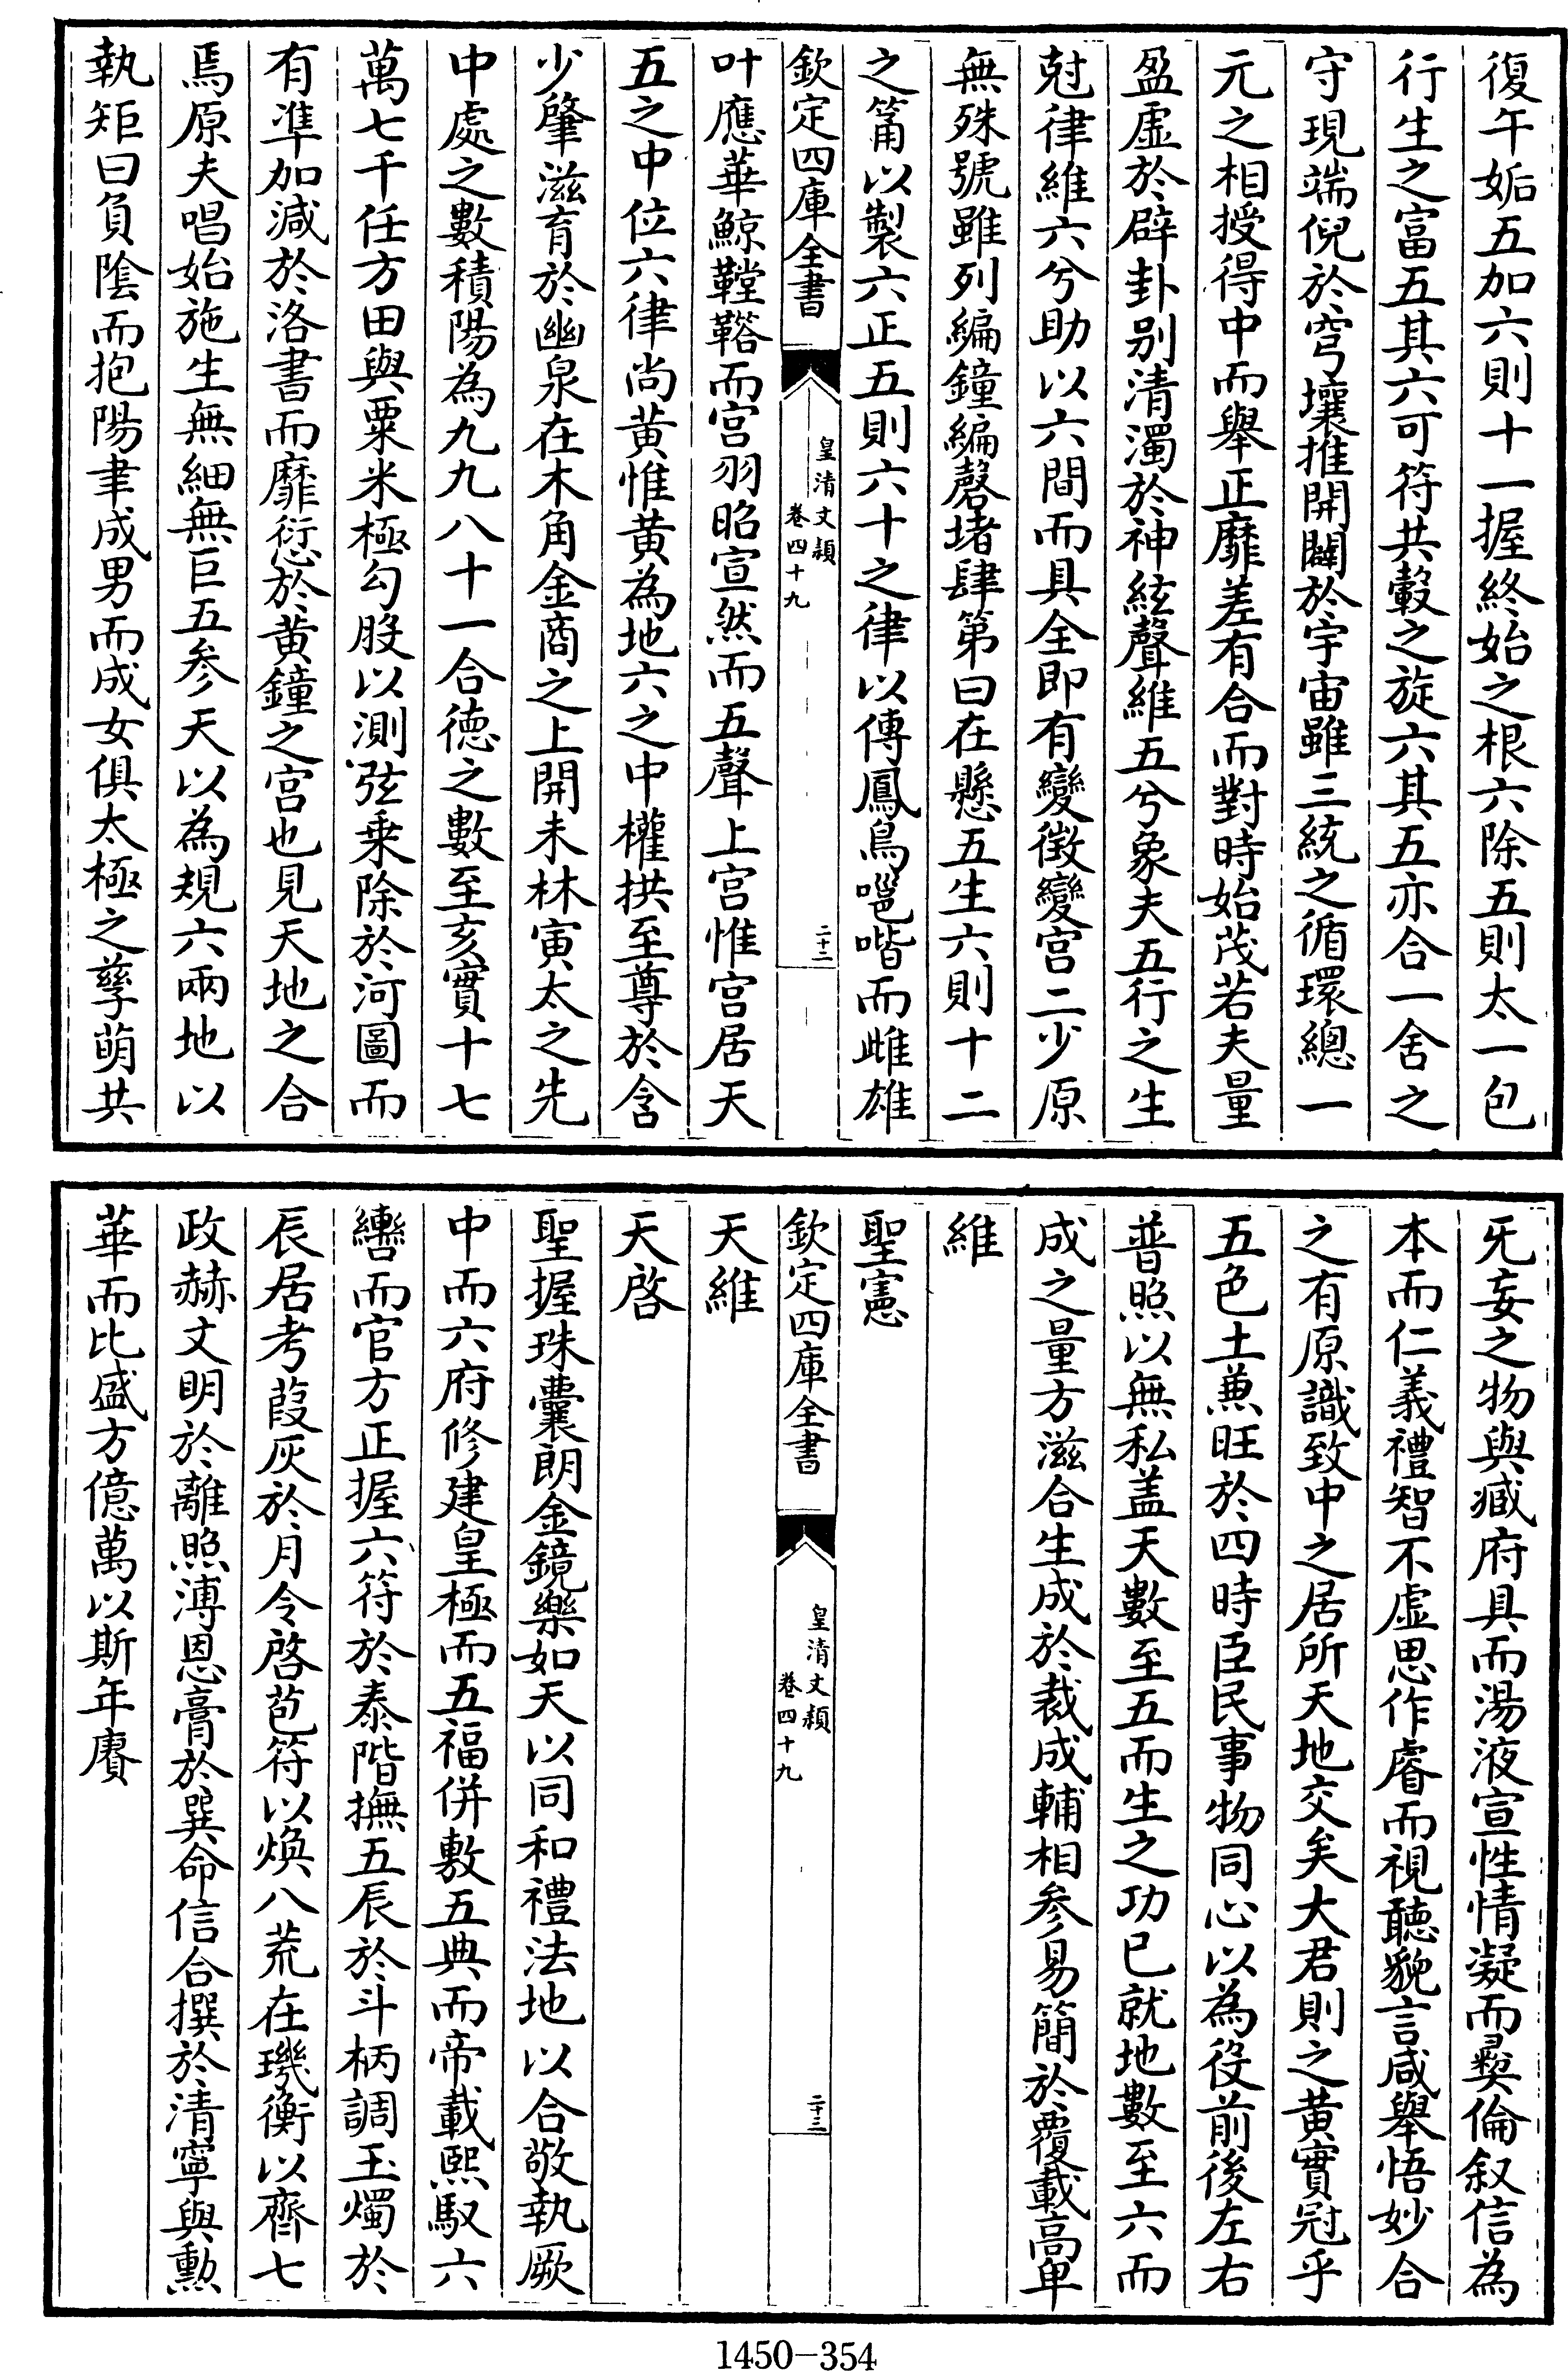 復午姤五加六則十一握終始之根六除五則太一包
行生之富五其六可符共轂之旋六其五亦合一舍之
守現端倪於穹壤推開闢於宇宙雖三統之循環總一
元之相授得中而舉正靡差有合而對時始茂若夫量
盈虛於辟卦别清濁於神絃聲維五兮象夫五行之生
尅律維六兮助以六間而具全即有變徴變宫二少原
無殊號雖列編鐘編磬堵肆第曰在懸五生六則十二
之筩以製六正五則六十之律以傳鳳鳥嗈喈而雌雄
欽定四庫全書
皇清文穎
卷四十九
二十二
叶應華鯨鞺鞳而宫羽昭宣然而五聲上宫惟宫居天
五之中位六律尚黄惟黄為地六之中權拱至尊於含
少肇滋育於幽泉在木角金商之上開未林寅太之先
中處之數積陽為九九八十一合德之數至亥實十七
萬七千任方田與粟米極勾股以測弦乗除於河圖而
有凖加減於洛書而靡愆於黄鐘之宫也見天地之合
焉原夫唱始施生無細無巨五参天以為規六兩地以
執矩曰負隂而抱陽聿成男而成女俱太極之孳萌共
旡妄之物與臧府具而湯液宣性情凝而彛倫叙信為
本而仁義禮智不虛思作睿而視聽貌言咸舉悟妙合
之有原識致中之居所天地交矣大君則之黄實冠乎
五色土兼旺於四時臣民事物同心以為役前後左右
普照以無私盖天數至五而生之功已就地數至六而
成之量方滋合生成於裁成輔相参易簡於覆載高卑
維
聖憲
欽定四庫全書
皇清文穎
卷四十九
二十三
天維
天啓
聖握珠囊朗金鏡樂如天以同和禮法地以合敬執厥
中而六府修建皇極而五福併敷五典而帝載熙馭六
轡而官方正握六符於泰階撫五辰於斗柄調玉燭於
辰居考葭灰於月令啓苞符以煥八荒在璣衡以齊七
政赫文明於離照溥恩膏於巽命信合撰於清寧與勲
華而比盛方億萬以斯年賡
1450-354